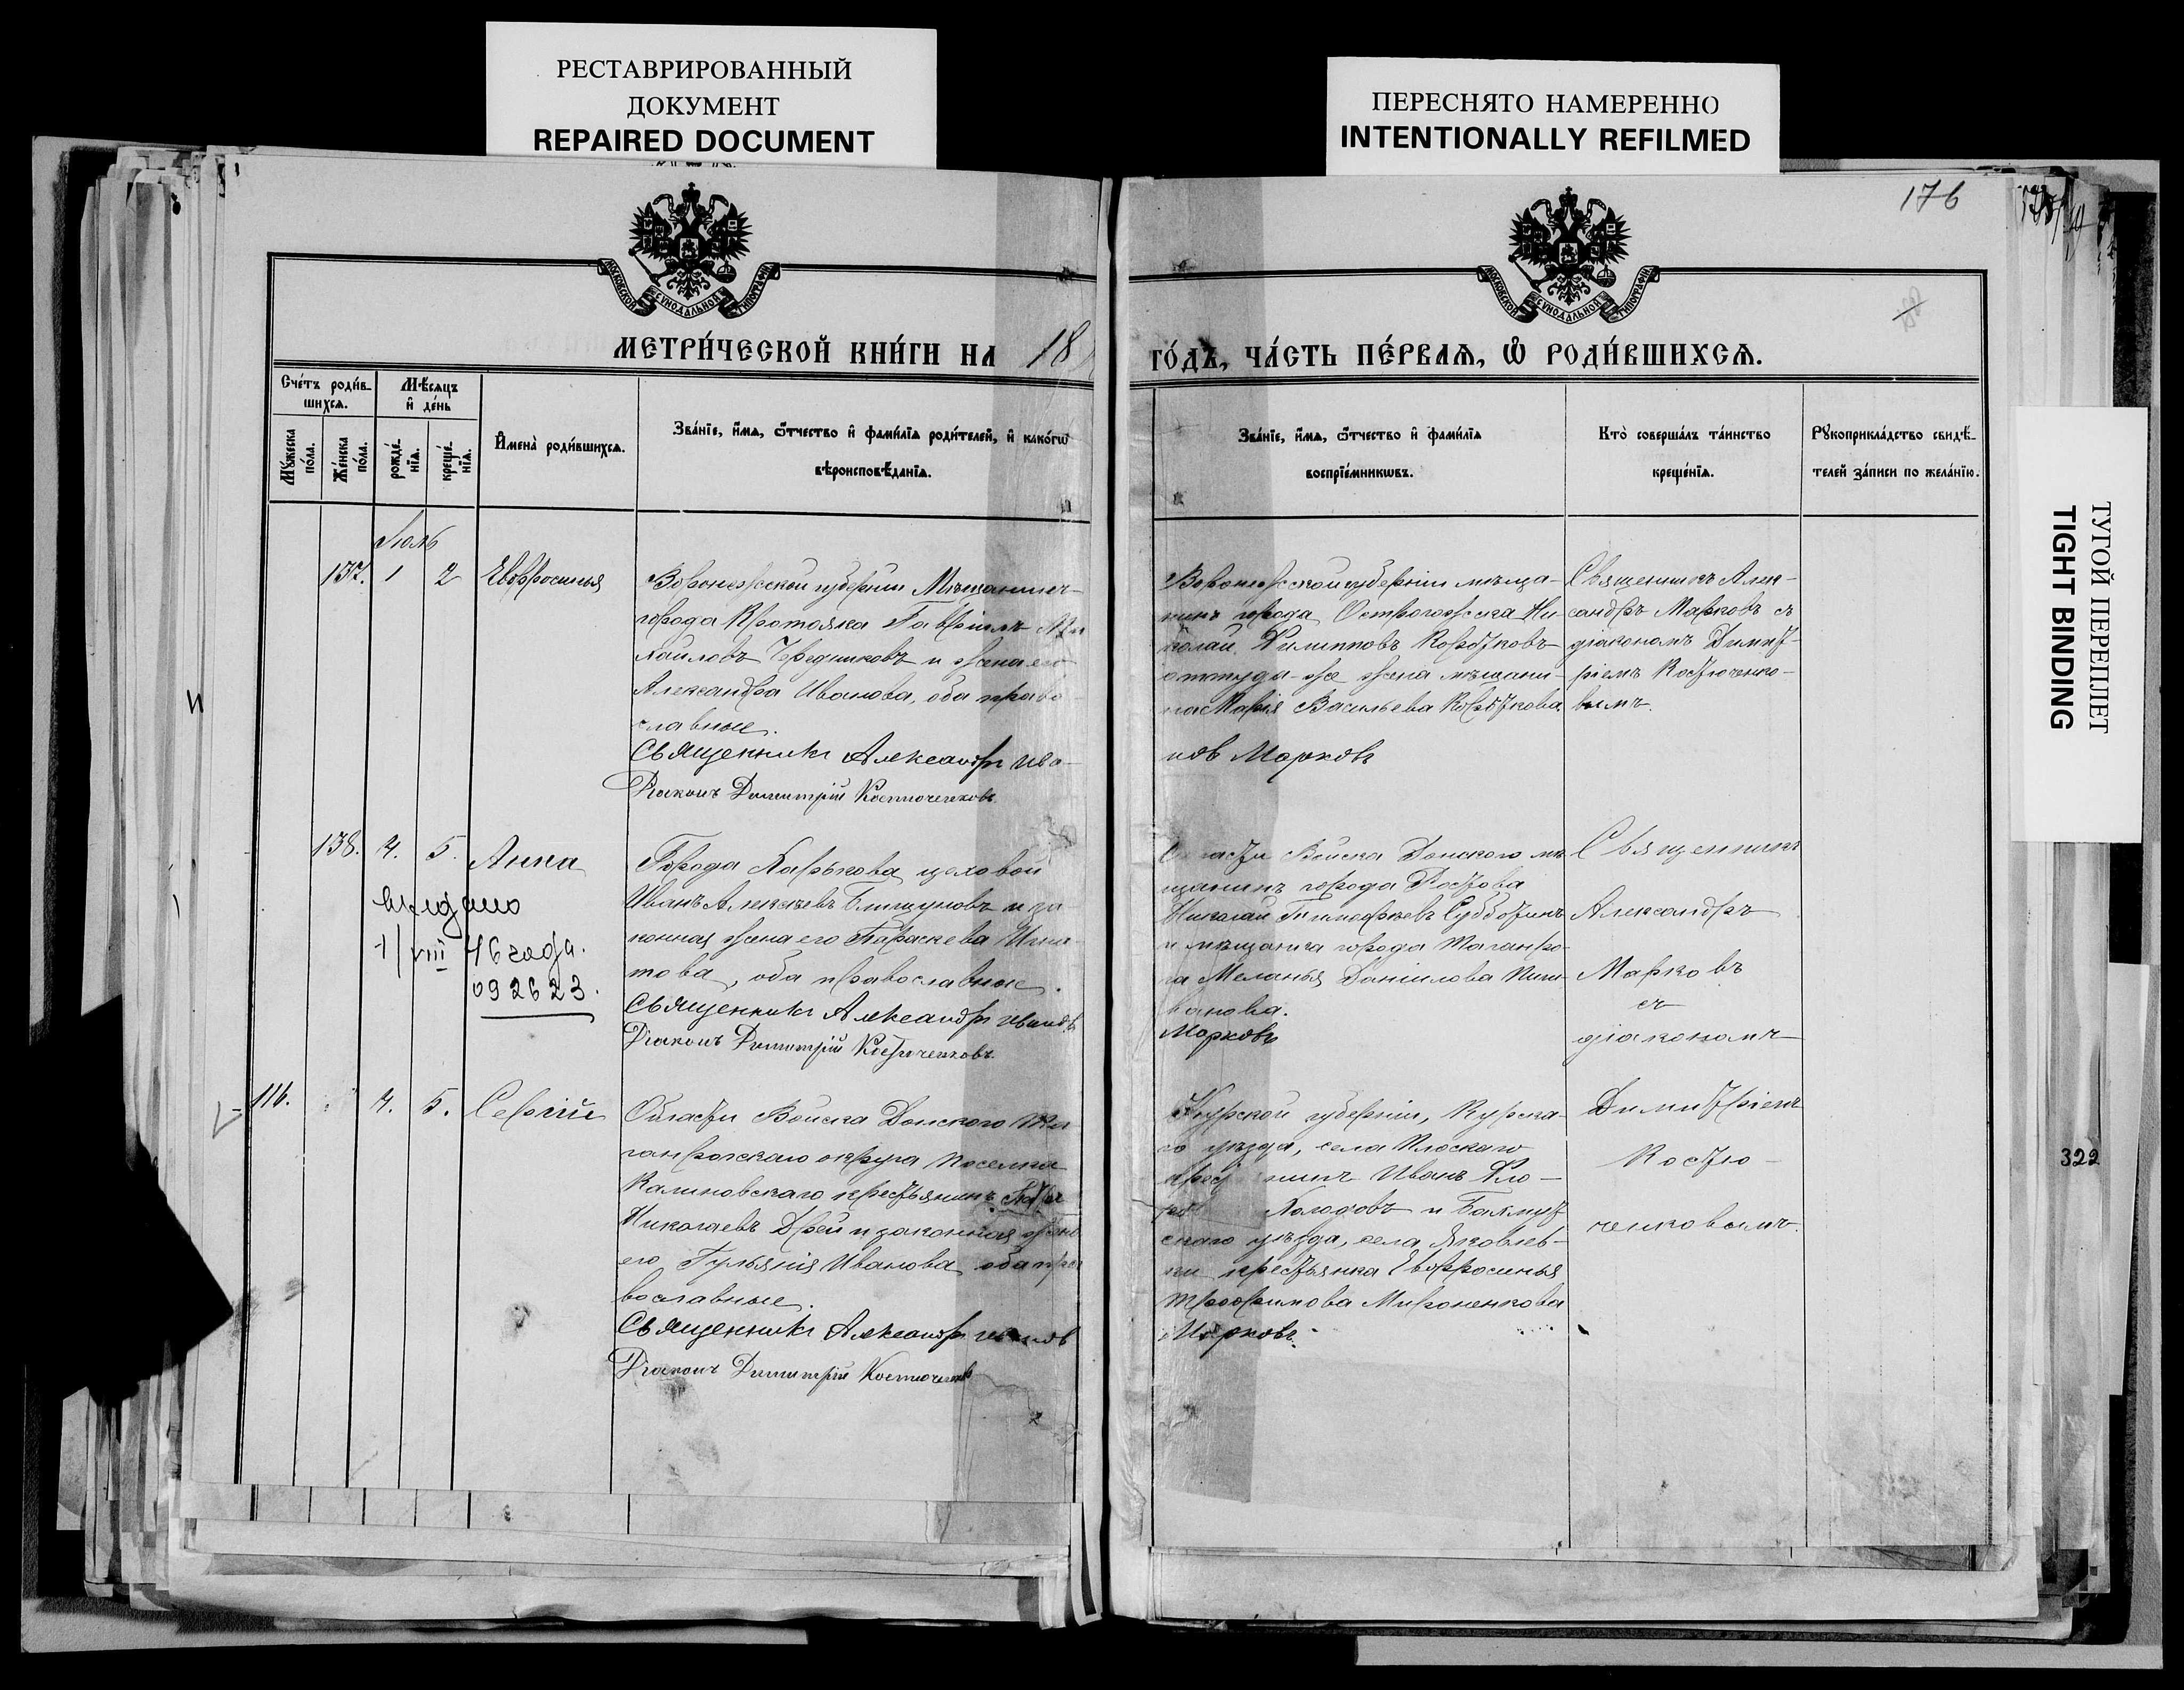 РЕСТАВРИРОВАННЫЙ
ДОКУМЕНТ
REPAIRED DOCUMENT
ПЕРЕСНЯТО НАМЕРЕННО
INTENTIONALLY REFILMED
176
МОСКОВСКОЙ СУНОДАЛЬНОЙ ТИПОГРАФІИ
МОСКОВСКОЙ СУНОДАЛЬНОЙ ТИПОГРАФІИ
МЕТРИ́ЧЕСКОЙ КНИ́ГИ НА 18
ГО́ДЪ, ЧА́СТЬ ПЕ́РВАѦ, Ѡ҆ РОДИ́ВШИХСѦ.
Сче́тъ роди́в-
шихсѧ.
Мѣ́сѧцъ
и҆ де́нь
Мꙋ́жеска
по́ла.
Же́нска
по́ла.
рожде́-
нїѧ.
креще́-
нїѧ.
И҆мена̀ роди́вшихсѧ.
Зва́нїе, и҆́мѧ, ѻ҆́тчество и҆ фами́лїѧ роди́телей, и҆ како́гѡ
вѣроисповѣ́данїѧ.
Зва́нїе, и҆́мѧ, ѻ҆́тчество и҆ фами́лїѧ
воспрїе́мникѡвъ.
Кто̀ соверша́лъ та́инство
креще́нїѧ.
Рꙋкоприкла́дство свидѣ́-
телей за́писи по жела́нїю.
Іюль
137. 1 2 Евфросинья
Воронежской губерніи Мѣщанинъ
города Коротояка Гавріилъ Ми
хайловъ Чередниковъ и жена его
Александра Иванова, оба право
славные.
Священникъ Александръ Ива-
Діаконъ Димитрій Костюченковъ.
Воронежской губерніи мѣща-
нинъ города Острогожска Ни-
колай Филипповъ Коротковъ
оттуда-же жена мѣщани-
на Марія Васильева Короткова.
новъ Марковъ
Священникъ Алек-
сандръ Марковъ съ
діакономъ Димит-
ріемъ Костюченко-
вымъ.
138. 4. 5. Анна
выдано
1/VIII 46 года.
092623.
Города Харькова цеховой
Иванъ Алексѣевъ и за-
конная жена его Параскева Игна-
това, оба православные.
Священникъ Александръ Ивановъ
Діаконъ Димитрій Костюченковъ.
Области Войска Донского мѣ
щанинъ города Ростова
Николай Тимофѣевъ Субботинъ
и мѣщанка города Таганро-
га Меланья Даніилова
ванова.
Марковъ
Священникъ
Александръ
Марковъ
съ
діакономъ
Димитріемъ
Костю-
ченковымъ.
116. 4. 5. Сергій
Области Войска Донского Та
ганрогскаго округа поселка
Калиновскаго крестьянинъ
Николаевъ и законная жена
его Гульянія Иванова, оба пра
вославные.
Священникъ Александръ Ивановъ
Діаконъ Димитрій Костюченковъ
Курской губерніи, Курска-
го уѣзда, села Плоскаго
Иванъ
Холодовъ и Бахмут
скаго уѣзда, села Яковлев-
ки крестьянка Евфросинья
Трофимова Мироненкова
Марковъ.
ТУГОЙ ПЕРЕПЛЕТ
TIGHT BINDING
322